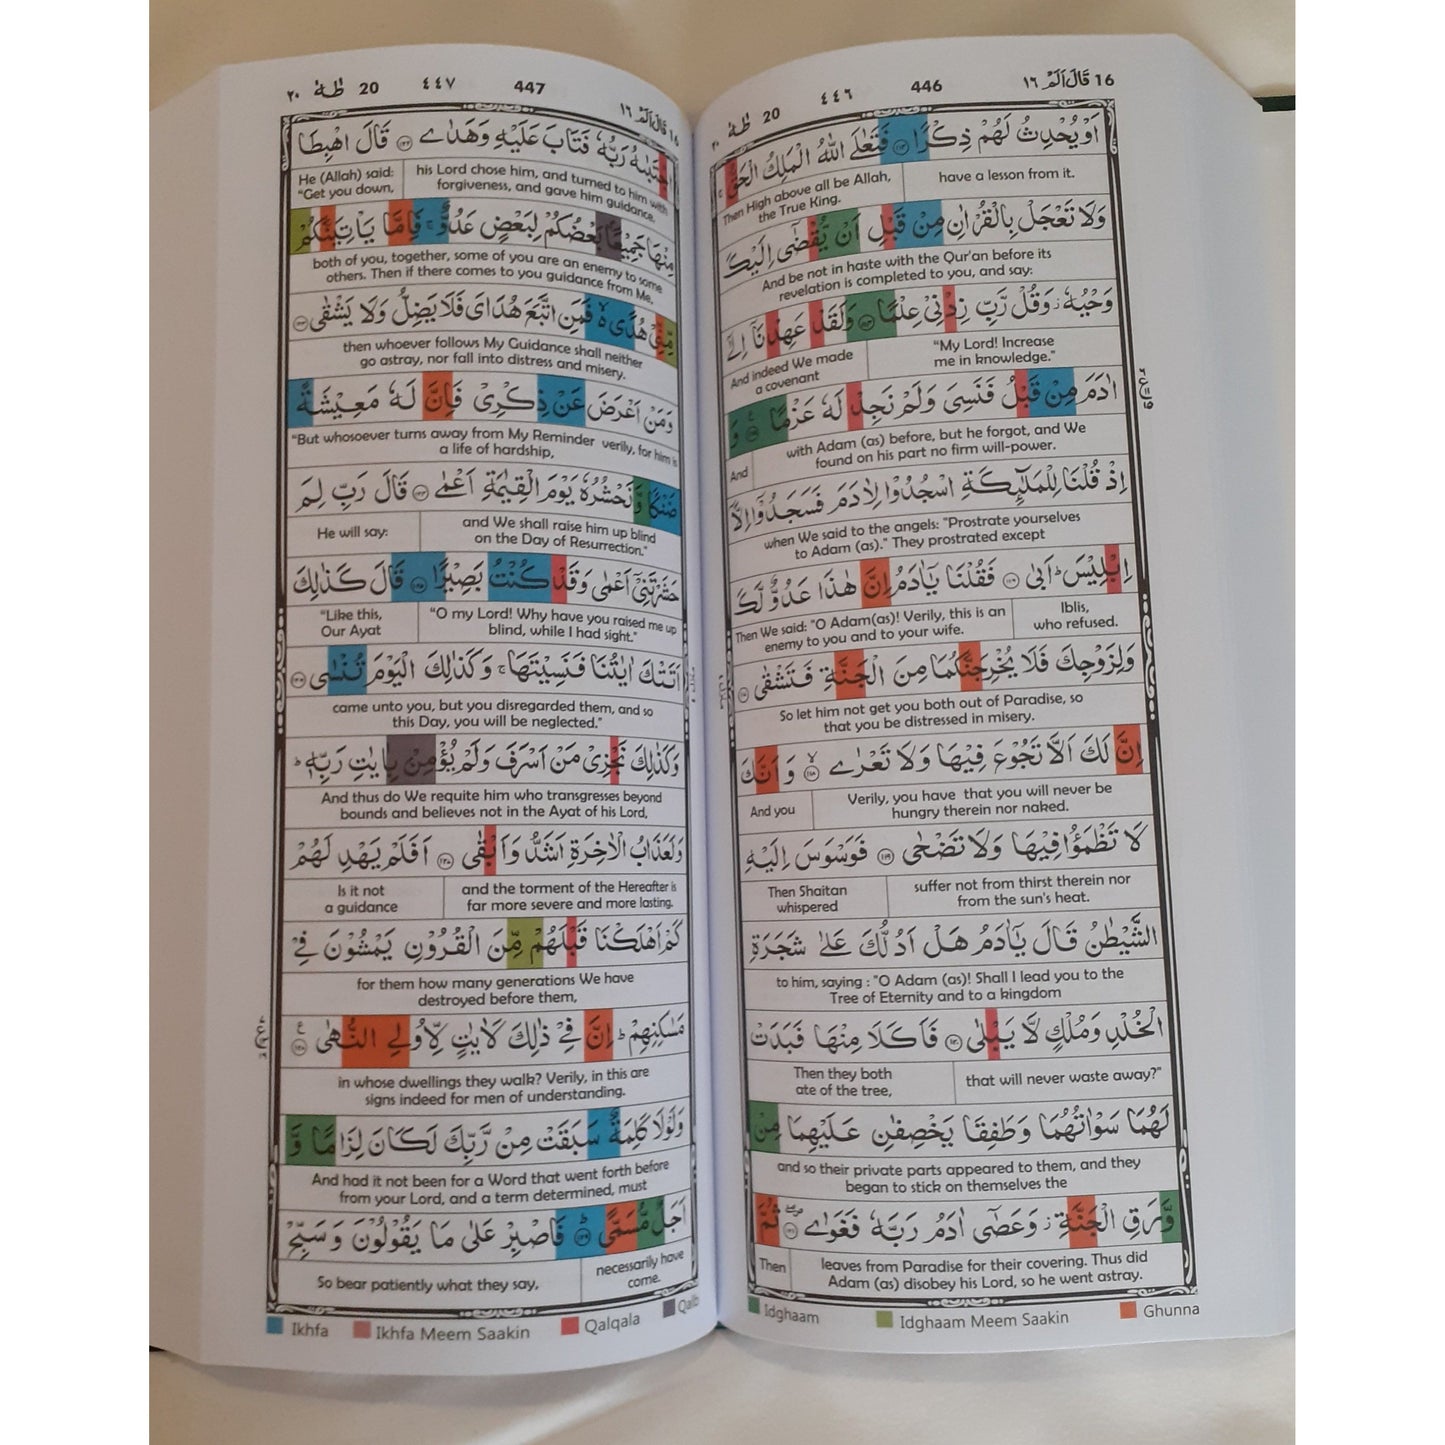 16 قَالَ اَلَمْ ١٦
446
٤٤٦
20 طٰهٰ ٢٠
اَوْ يُحْدِثُ لَهُمْ ذِكْرًا ۝١١٣ فَتَعٰلَى اللّٰهُ الْمَلِكُ الْحَقُّ ۚ
have a lesson from it.
Then High above all be Allah,
the True King.
وَلَا تَعْجَلْ بِالْقُرْاٰنِ مِنْ قَبْلِ اَنْ يُّقْضٰٓى اِلَيْكَ
And be not in haste with the Qur'an before its
revelation is completed to you, and say:
وَحْيُهٗ ۡ وَقُلْ رَّبِّ زِدْنِيْ عِلْمًا ۝١١٤ وَلَقَدْ عَهِدْنَآ اِلٰٓى
"My Lord! Increase
me in knowledge."
And indeed We made
a covenant
اٰدَمَ مِنْ قَبْلُ فَنَسِيَ وَلَمْ نَجِدْ لَهٗ عَزْمًا ۝١١٥ وَ
with Adam (as) before, but he forgot, and We
found on his part no firm will-power.
And
اِذْ قُلْنَا لِلْمَلٰٓئِكَةِ اسْجُدُوْا لِاٰدَمَ فَسَجَدُوْٓا اِلَّآ
when We said to the angels: "Prostrate yourselves
to Adam (as)." They prostrated except
اِبْلِيْسَ ؕ اَبٰى ۝١١٦ فَقُلْنَا يٰٓاٰدَمُ اِنَّ هٰذَا عَدُوٌّ لَّكَ
Iblis,
who refused.
Then We said: "O Adam(as)! Verily, this is an
enemy to you and to your wife.
وَلِزَوْجِكَ فَلَا يُخْرِجَنَّكُمَا مِنَ الْجَنَّةِ فَتَشْقٰى ۝١١٧
So let him not get you both out of Paradise, so
that you be distressed in misery.
اِنَّ لَكَ اَلَّا تَجُوْعَ فِيْهَا وَلَا تَعْرٰى ۝١١٨ وَ اَنَّكَ
Verily, you have that you will never be
hungry therein nor naked.
And you
لَا تَظْمَؤُا فِيْهَا وَلَا تَضْحٰى ۝١١٩ فَوَسْوَسَ اِلَيْهِ
suffer not from thirst therein nor
from the sun's heat.
Then Shaitan
whispered
الشَّيْطٰنُ قَالَ يٰٓاٰدَمُ هَلْ اَدُلُّكَ عَلٰى شَجَرَةِ
to him, saying : "O Adam (as)! Shall I lead you to the
Tree of Eternity and to a kingdom
الْخُلْدِ وَمُلْكٍ لَّا يَبْلٰى ۝١٢٠ فَاَكَلَا مِنْهَا فَبَدَتْ
that will never waste away?"
Then they both
ate of the tree,
لَهُمَا سَوْاٰتُهُمَا وَطَفِقَا يَخْصِفٰنِ عَلَيْهِمَا مِنْ
and so their private parts appeared to them, and they
began to stick on themselves the
وَّرَقِ الْجَنَّةِ ۡ وَعَصٰٓى اٰدَمُ رَبَّهٗ فَغَوٰى ۝١٢١ ثُمَّ
leaves from Paradise for their covering. Thus did
Adam (as) disobey his Lord, so he went astray.
Then
Idghaam
Idghaam Meem Saakin
Ghunna
16 قَالَ اَلَمْ ١٦
447
٤٤٧
20 طٰهٰ ٢٠
اجْتَبٰىهُ رَبُّهٗ فَتَابَ عَلَيْهِ وَهَدٰى ۝١٢٢ قَالَ اهْبِطَا
his Lord chose him, and turned to him with
forgiveness, and gave him guidance.
He (Allah) said:
"Get you down,
مِنْهَا جَمِيْعًا بَعْضُكُمْ لِبَعْضٍ عَدُوٌّ ۚ فَاِمَّا يَاْتِيَنَّكُمْ
both of you, together, some of you are an enemy to some
others. Then if there comes to you guidance from Me,
مِّنِّيْ هُدًى ۙ فَمَنِ اتَّبَعَ هُدَايَ فَلَا يَضِلُّ وَلَا يَشْقٰى ۝١٢٣
then whoever follows My Guidance shall neither
go astray, nor fall into distress and misery.
وَمَنْ اَعْرَضَ عَنْ ذِكْرِيْ فَاِنَّ لَهٗ مَعِيْشَةً
"But whosoever turns away from My Reminder verily, for him is
a life of hardship,
ضَنْكًا وَّنَحْشُرُهٗ يَوْمَ الْقِيٰمَةِ اَعْمٰى ۝١٢٤ قَالَ رَبِّ لِمَ
and We shall raise him up blind
on the Day of Resurrection."
He will say:
حَشَرْتَنِيْٓ اَعْمٰى وَقَدْ كُنْتُ بَصِيْرًا ۝١٢٥ قَالَ كَذٰلِكَ
"O my Lord! Why have you raised me up
blind, while I had sight."
"Like this,
Our Ayat
اَتَتْكَ اٰيٰتُنَا فَنَسِيْتَهَا ۚ وَكَذٰلِكَ الْيَوْمَ تُنْسٰى ۝١٢٦
came unto you, but you disregarded them, and so
this Day, you will be neglected."
وَكَذٰلِكَ نَجْزِيْ مَنْ اَسْرَفَ وَلَمْ يُؤْمِنْۢ بِاٰيٰتِ رَبِّهٖ ؕ
And thus do We requite him who transgresses beyond
bounds and believes not in the Ayat of his Lord,
وَلَعَذَابُ الْاٰخِرَةِ اَشَدُّ وَاَبْقٰى ۝١٢٧ اَفَلَمْ يَهْدِ لَهُمْ
and the torment of the Hereafter is
far more severe and more lasting.
Is it not
a guidance
كَمْ اَهْلَكْنَا قَبْلَهُمْ مِّنَ الْقُرُوْنِ يَمْشُوْنَ فِيْ
for them how many generations We have
destroyed before them,
مَسٰكِنِهِمْ ؕ اِنَّ فِيْ ذٰلِكَ لَاٰيٰتٍ لِّاُولِي النُّهٰى ۝١٢٨
in whose dwellings they walk? Verily, in this are
signs indeed for men of understanding.
وَلَوْلَا كَلِمَةٌ سَبَقَتْ مِنْ رَّبِّكَ لَكَانَ لِزَامًا وَّ
And had it not been for a Word that went forth before
from your Lord, and a term determined, must
اَجَلٌ مُّسَمًّى ۝١٢٩ فَاصْبِرْ عَلٰى مَا يَقُوْلُوْنَ وَسَبِّحْ
necessarily have
come.
So bear patiently what they say,
Ikhfa
Ikhfa Meem Saakin
Qalqala